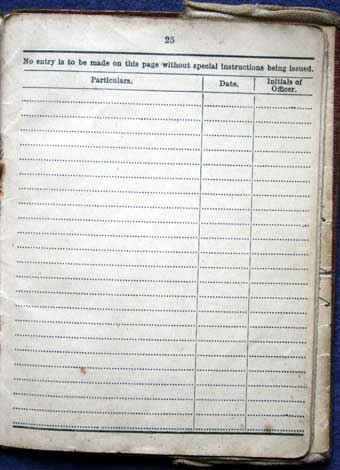 25
No entry is to be made on this page without special instructions being issued.
Particulars. Date. Initials of
Officer.